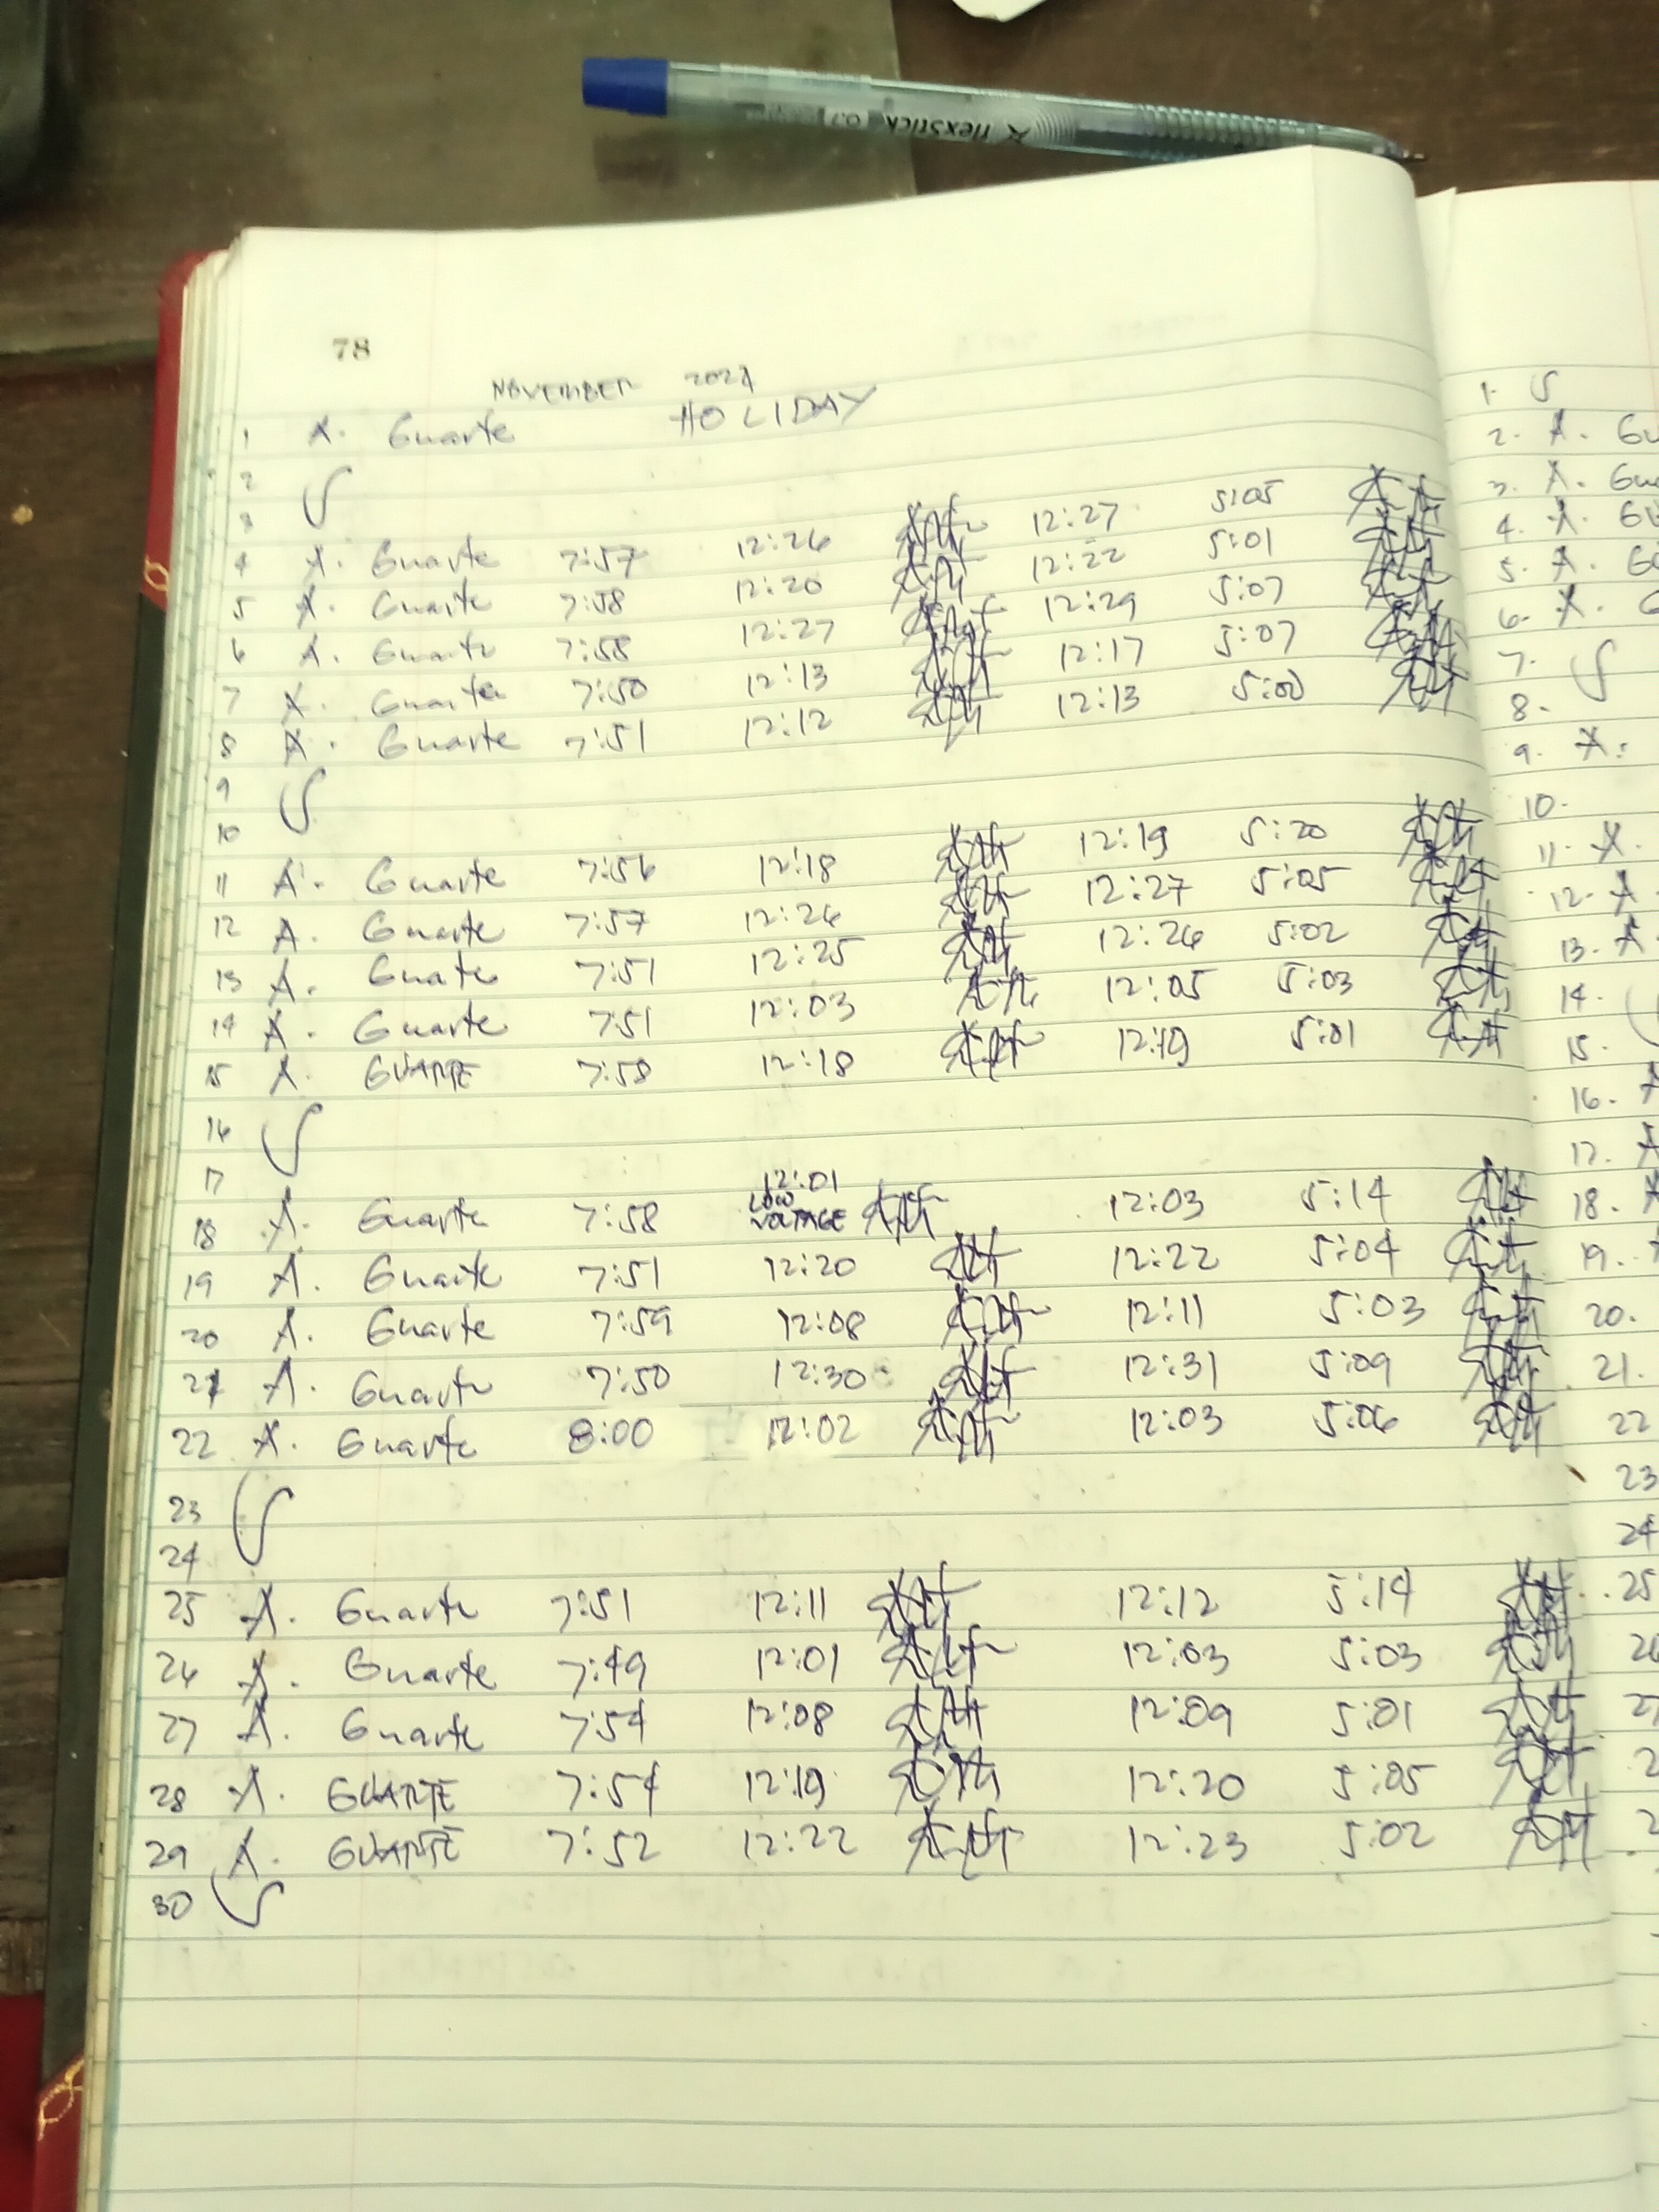 flexstick 0.7
78
NOVEMBER 2024
1 A. Guarte HOLIDAY
2 S
3
4 A. Guarte 7:57 12:26 12:27 5:05
5 A. Guarte 7:58 12:20 12:22 5:01
6 A. Guarte 7:58 12:27 12:29 5:07
7 A. Guarte 7:50 12:13 12:17 5:07
8 A. Guarte 7:51 12:12 12:13 5:00
9 S
10
11 A. Guarte 7:56 12:18 12:19 5:20
12 A. Guarte 7:57 12:26 12:27 5:05
13 A. Guate 7:51 12:25 12:26 5:02
14 A. Guarte 7:51 12:03 12:05 5:03
15 A. GUARTE 7:58 12:18 12:19 5:01
16 S
17
12:01
18 A. Guarte 7:58 LOW VOLTAGE 12:03 5:14
19 A. Guarte 7:51 12:20 12:22 5:04
20 A. Guarte 7:59 12:08 12:11 5:03
21 A. Guarte 7:50 12:30 12:31 5:09
22 A. Guarte 8:00 12:02 12:03 5:06
23 S
24
25 A. Guarte 7:51 12:11 12:12 5:14
26 A. Guarte 7:49 12:01 12:03 5:03
27 A. Guarte 7:54 12:08 12:09 5:01
28 A. GUARTE 7:54 12:19 12:20 5:05
29 A. GUARTE 7:52 12:22 12:23 5:02
30 S
1. S
2. A. Gu
3. A. Gua
4. A. Gu
5. A. Gu
6. A. G
7. S
8.
9. A.
10.
11. A.
12. A
13. A
14.
15.
16. A
17. A
18. A
19.
20.
21.
22
23
24
25
26
27
2
2